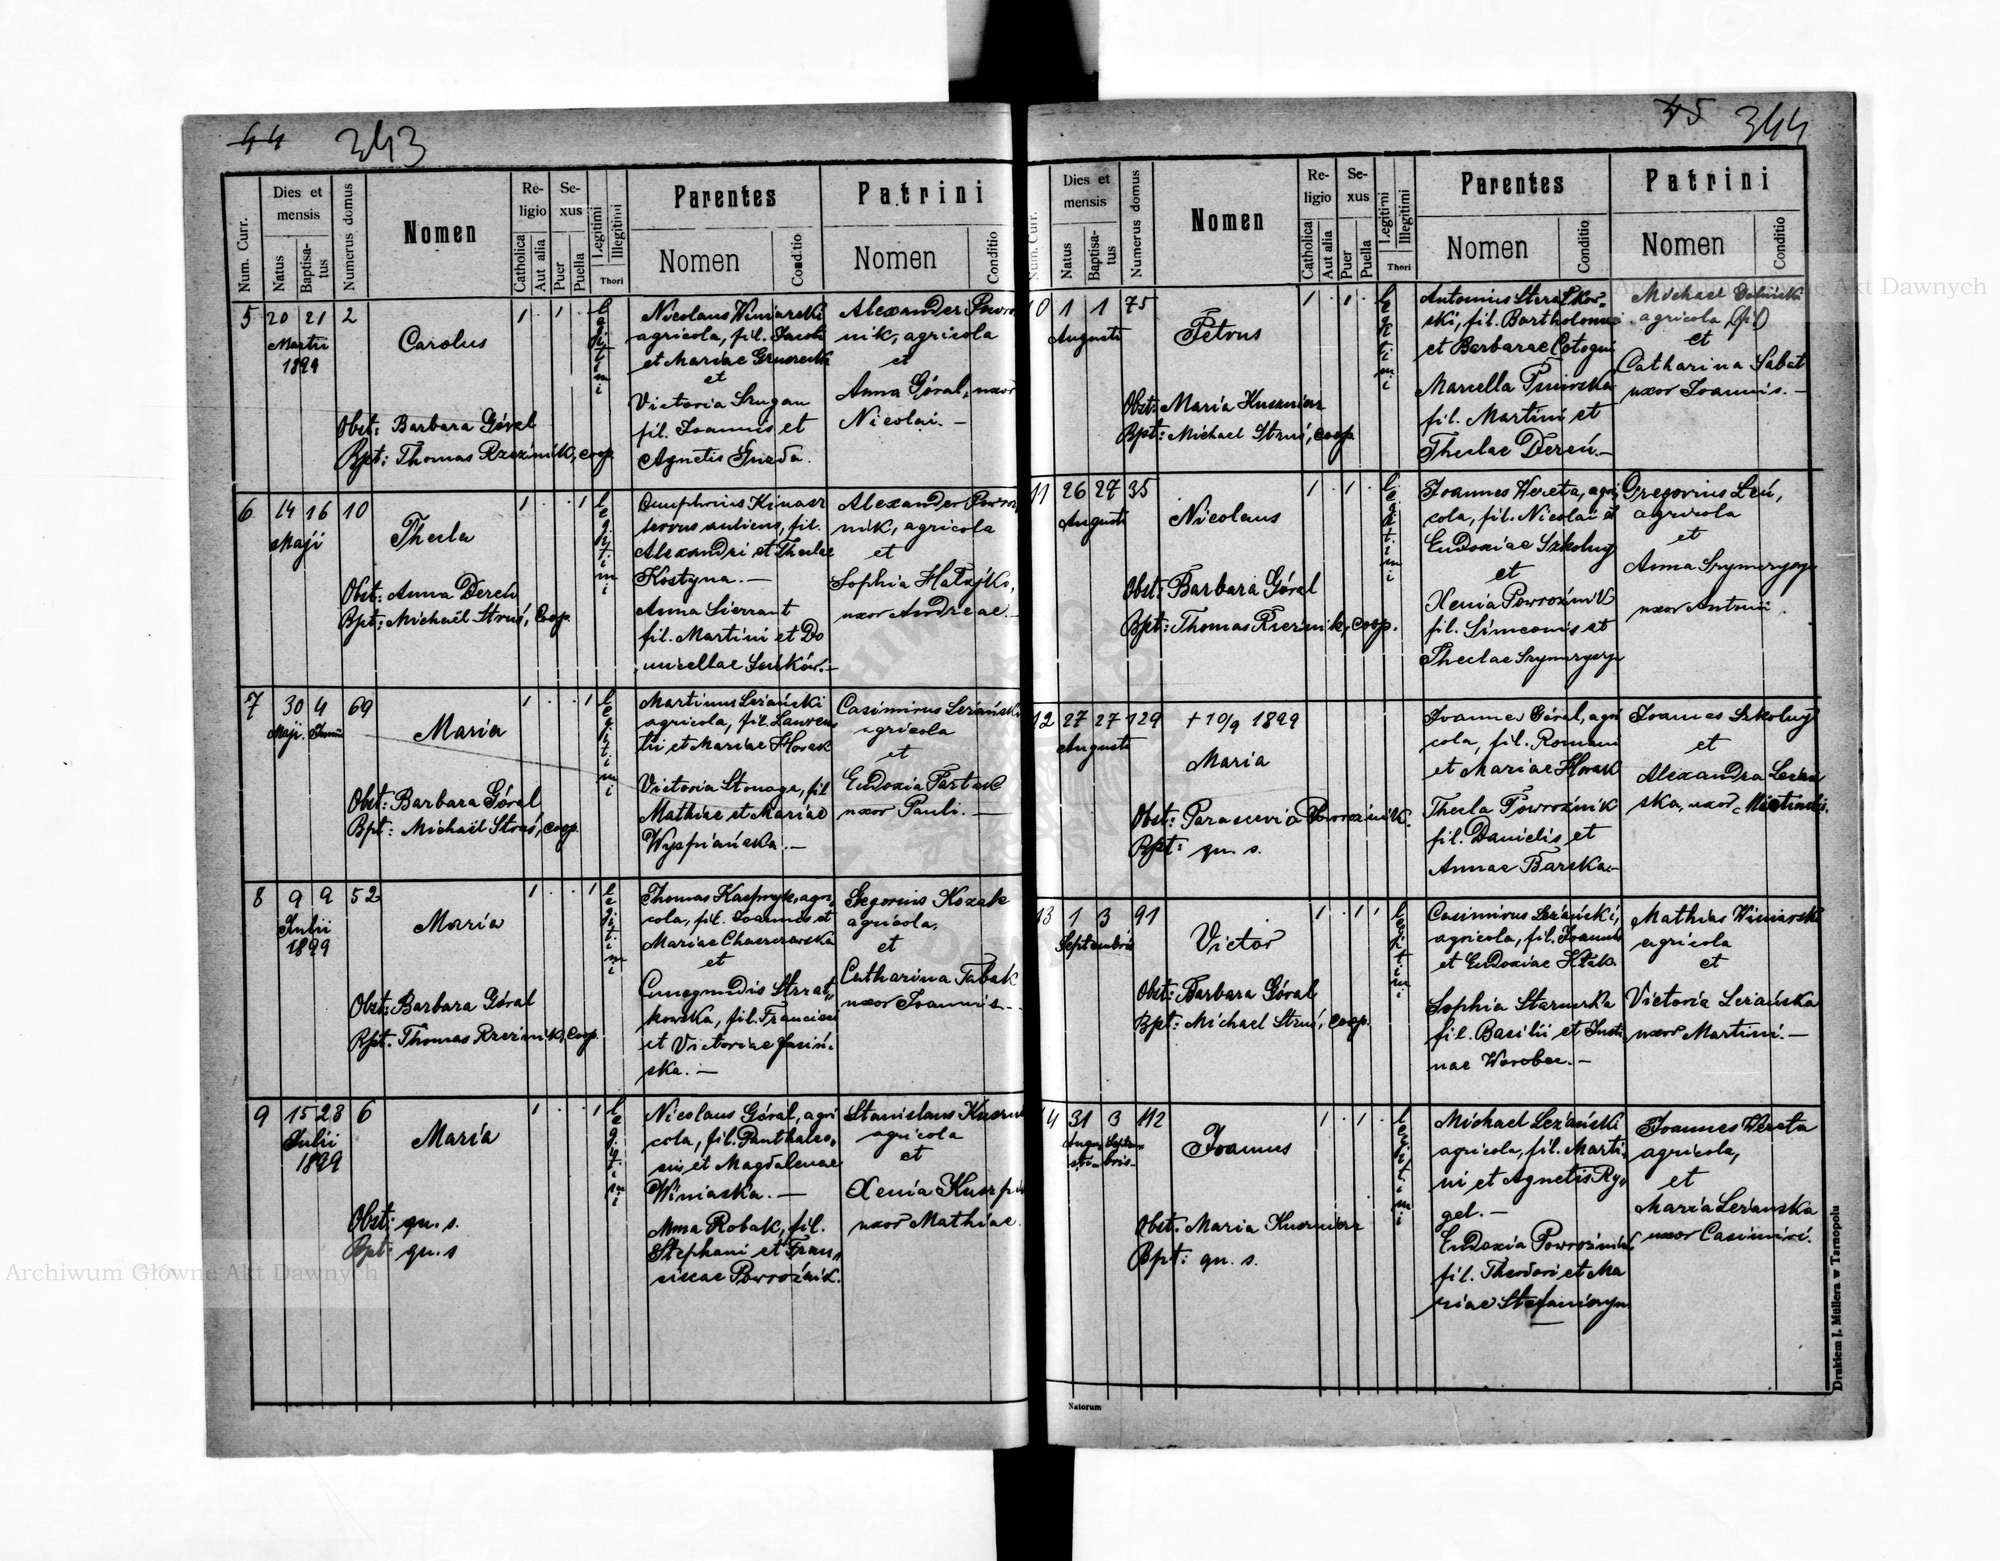 44 343
Num. Curr.
Dies et mensis
Natus
Baptisatus
Numerus domus
Nomen
Religio
Catholica
Aut alia
Sexus
Puer
Puella
Legitimi
Illegitimi
Thori
Parentes
Nomen
Conditio
Patrini
Nomen
Conditio
5 20 21 2
Martii
1899
Carolus
1 . 1 .
legitimi
Obst: Barbara Góral
Bpt: Thomas Rzeźnik, coop.
Nicolaus Winiarski
agricola, fil. Jacobi
et Mariae
et
Victoria
fil. Joannis et
Agnetis
Alexander
nik, agricola
et
Anna Góral, uxor
Nicolai. —
6 14 16 10
Maji
Thecla
1 . . 1
legitimi
Obst: Anna Dereń
Bpt: Michaël Struś, Coop.
Onuphrius
fil.
Alexandri et Theclae
Kostyna. —
Anna Sierrant
fil. Martini et Do
micellae
Alexander
nik, agricola
et
Sophia
uxor Andreae. —
7 30 4 69
Maji. Junii
Maria
1 . . 1
legitimi
Obst: Barbara Góral
Bpt: Michaël Struś, coop.
Martinus Leżański
agricola, fil. Lauren
tii et Mariae Horak
Victoria fil
Mathiae et Mariae
Wyspiańska. —
Casimirus Leżański
agricola
et
Eudoxia
uxor Pauli. —
8 9 9 52
Julii
1899
Maria
1 . . 1
legitimi
Obst: Barbara Góral
Bpt. Thomas Rzeźnik, coop.
Thomas Kasprzyk, agri
cola, fil. Joannis et
Mariae
et
Cunegundis Strat„
kowska, fil. Francisci
et Victoriae Jasiń„
ska. —
Gregorius Kozak
agricola,
et
Catharina Tabak
uxor Joannis —
9 15 23 6
Julii
1899
Maria
1 . . 1
legitimi
Obst: qu. s.
Bpt: qu. s
Nicolaus Góral, agri
cola, fil. Panthaleo„
nis, et Magdalenae
Winiaska. —
Anna Robak, fil.
Stephani et Fran„
ciscae Powroźnik.
Stanislaus
agricola
et
Xenia
uxor Mathiae.
45 344
Num. Curr.
Dies et mensis
Natus
Baptisatus
Numerus domus
Nomen
Religio
Catholica
Aut alia
Sexus
Puer
Puella
Legitimi
Illegitimi
Thori
Parentes
Nomen
Conditio
Patrini
Nomen
Conditio
10 1 1 75
Augusti
Petrus
1 . 1 .
legitimi
Obst: Maria Kusznierz
Bpt: Michael Struś, coop.
Antonius
ski, fil. Bartholomaei
et Barbarae
Marcella
fil. Martini et
Theclae Dereń. —
Michael
agricola (fil)
et
Catharina Sabat
uxor Joannis. —
11 26 27 35
Augusti
Nicolaus
1 . 1 .
legitimi
Obst: Barbara Góral
Bpt: Thomas Rzeźnik, coop.
Joannes Wereta, agri
cola, fil. Nicolai et
Eudoxiae Szkolny
et
Xenia Powroźnik
fil. Simeonis et
Theclae
Gregorius Leń,
agricola
et
Anna
uxor Antonii.
12 27 27 129
Augusti
† 10/9 1899
Maria
Obst: Parascevia Powroźnik.
Bpt: qu. s.
Joannes Góral, agri
cola, fil. Romani
et Mariae Horak
Thecla Powroźnik
fil. Danielis et
Annae Barska —
Joannes Szkolny
et
Alexandra Leżań
ska, uxor
13 1 3 91
Septembris
Victor
1 . 1 .
legitimi
Obst: Barbara Góral
Bpt: Michael Struś, coop.
Casimirus Leżański,
agricola, fil. Joannis
et Eudoxiae
Sophia
fil. Basilii et Justi
nae Worobec. —
Mathias Winiarski
agricola
et
Victoria Leżańska
uxor Martini. —
14 31 3 112
Augusti Septembris
Joannes
1 . 1 .
legitimi
Obst: Maria Kusznierz
Bpt: qu. s.
Michael Leżański
agricola, fil. Marti„
ni et Agnetis Ry„
gel. —
Eudoxia Powroźnik
fil. Theodori et Ma
riae Stefaniszyn
Joannes Wereta
agricola,
et
Maria Leżańska
uxor Casimiri.
Natorum
Drukiem J. Müllera w Tarnopolu
Archiwum Główne Akt Dawnych
Archiwum Główne Akt Dawnych